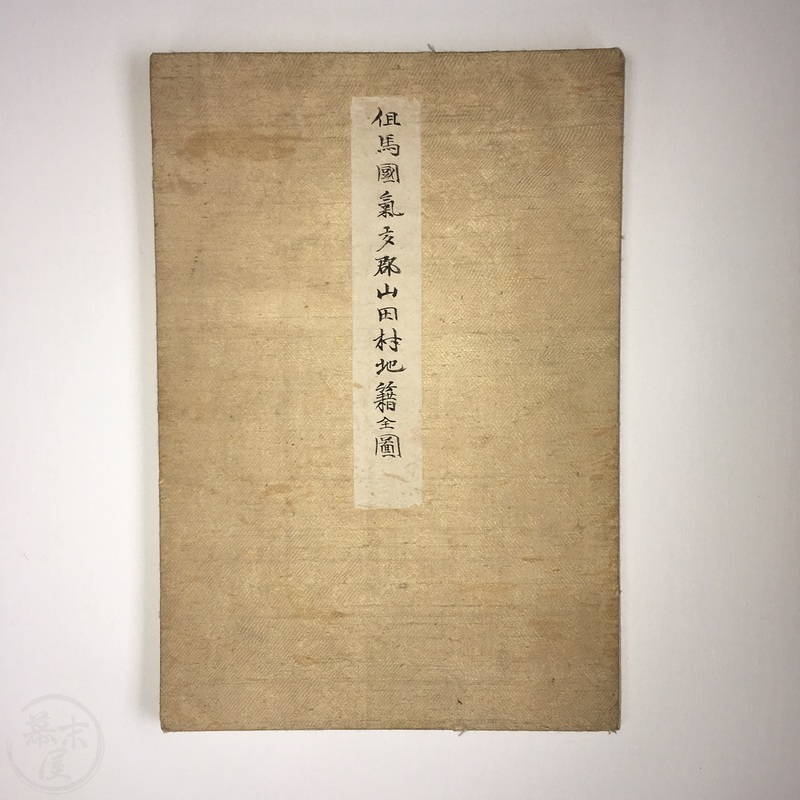 但馬國氣多郡山田村地籍全圖
幕末屋